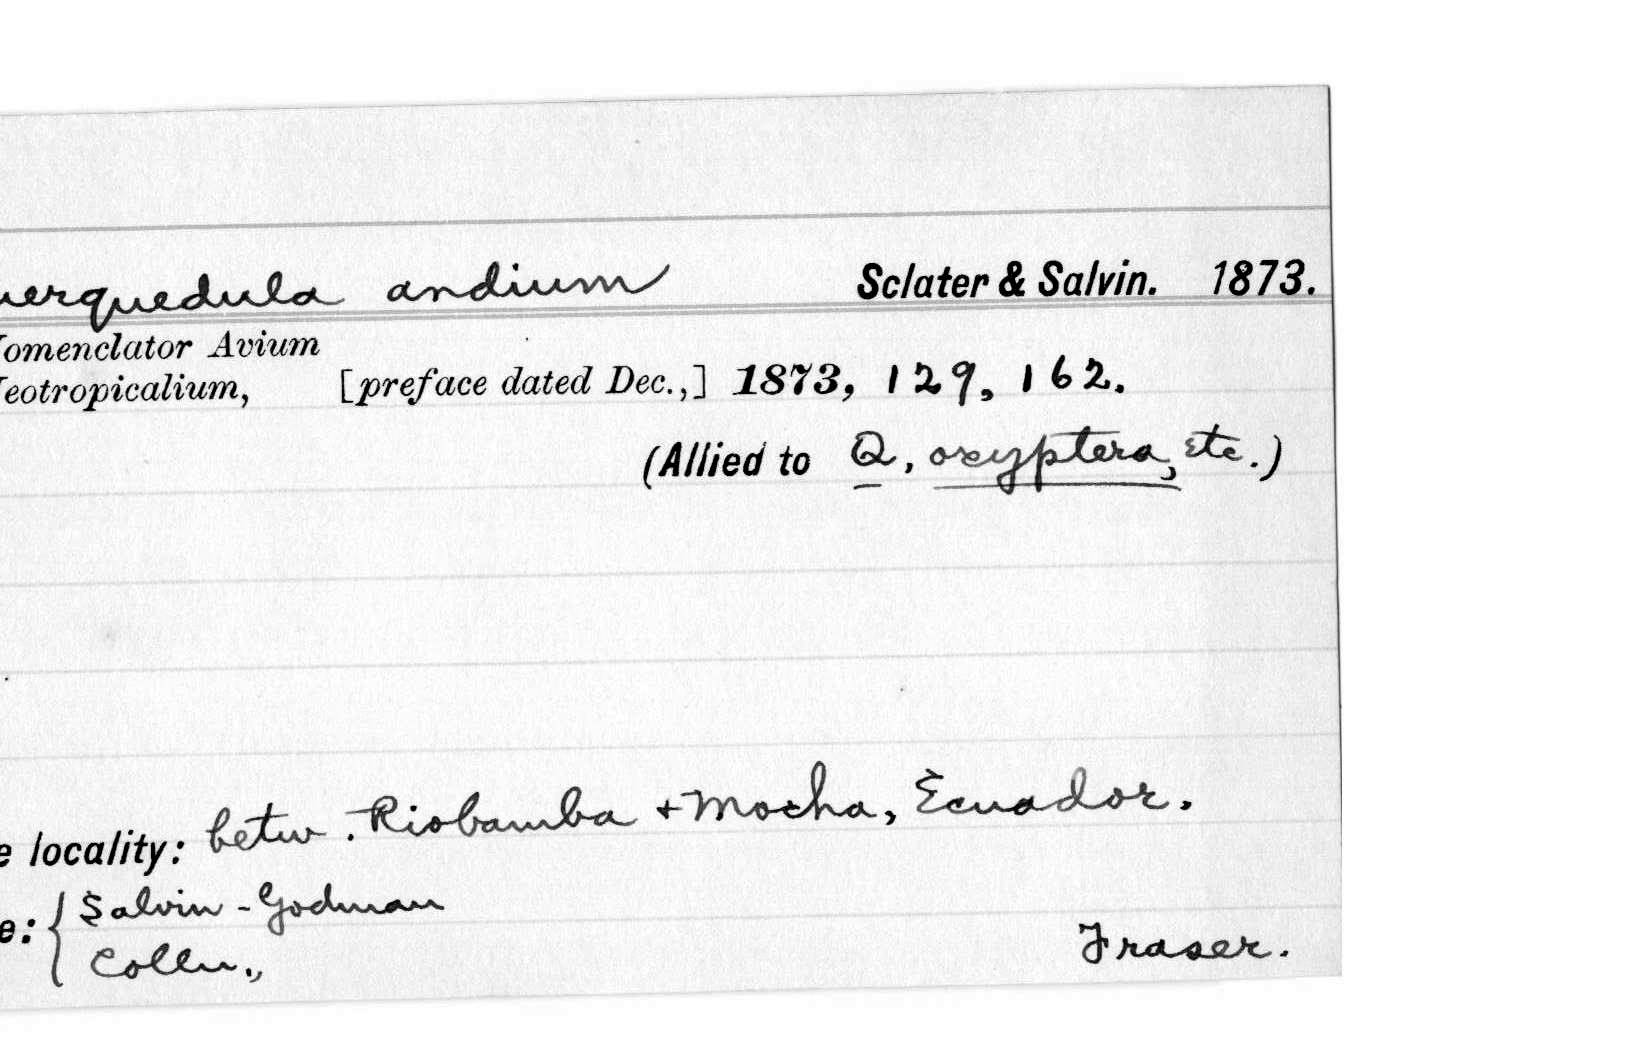 uerquedula andium Sclater & Salvin. 1873.
Nomenclator Avium
Neotropicalium, [preface dated Dec.,] 1873, 129, 162.
(Allied to Q. oxyptera, etc.)
e locality: betw. Riobamba + Mocha, Ecuador.
e: { Salvin-Godman
Colln., Fraser.